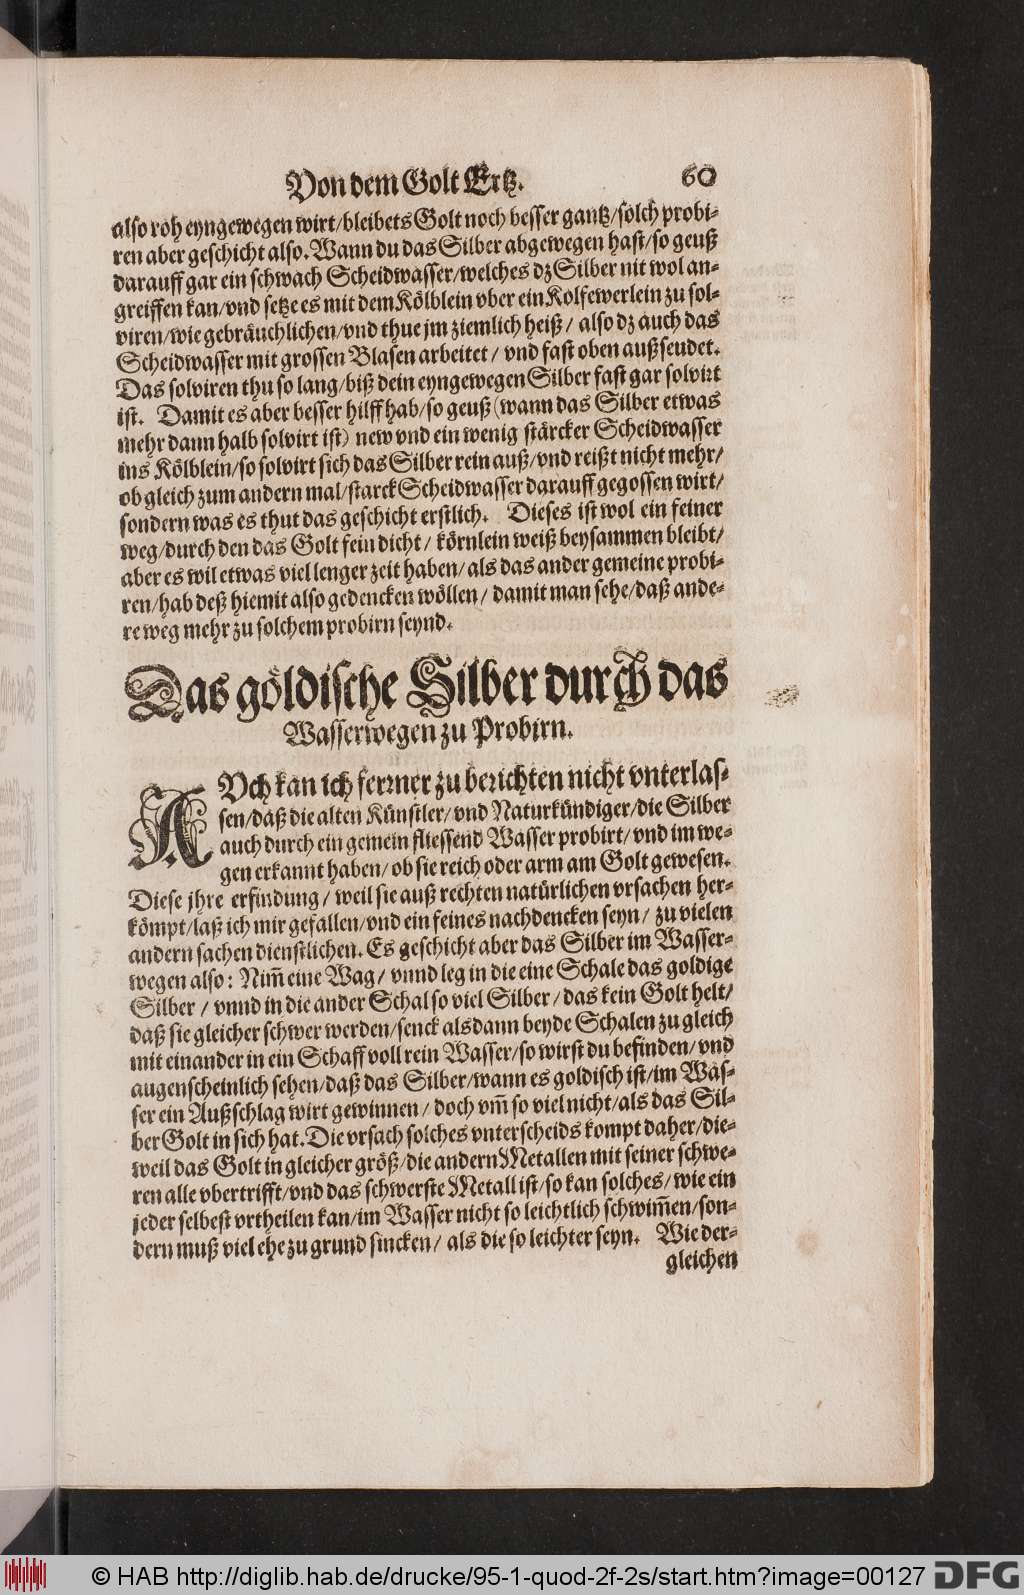 Von dem Golt Ertz. 60
also roh eyngewegen wirt/bleibets Golt noch besser gantz/solch probi-
ren aber geschicht also. Wann du das Silber abgewegen hast/so geuß
darauff gar ein schwach Scheidwasser/welches dz Silber nit wol an-
greiffen kan/vnd setze es mit dem Kölblein vber ein Kolfewerlein zu sol-
viren/wie gebräuchlichen/vnd thue jm ziemlich heiß/ also dz auch das
Scheidwasser mit grossen Blasen arbeitet/ vnd fast oben außseudet.
Das solviren thu so lang/biß dein eyngewegen Silber fast gar solvirt
ist. Damit es aber besser hilff hab/so geuß (wann das Silber etwas
mehr dann halb solvirt ist) new vnd ein wenig stärcker Scheidwasser
ins Kölblein/so solvirt sich das Silber rein auß/vnd reißt nicht mehr/
ob gleich zum andern mal/starck Scheidwasser darauff gegossen wirt/
sondern was es thut das geschicht erstlich. Dieses ist wol ein feiner
weg/durch den das Golt fein dicht/ körnlein weiß beysammen bleibt/
aber es wil etwas viel lenger zeit haben/ als das ander gemeine probi-
ren/hab deß hiemit also gedencken wöllen/ damit man sehe/daß ande-
re weg mehr zu solchem probirn seynd.
Das göldische Silber durch das
Wasserwegen zu Probirn.
AVch kan ich ferrner zu berichten nicht vnterlas-
sen/daß die alten Künstler/ vnd Naturkündiger/die Silber
auch durch ein gemein fliessend Wasser probirt/ vnd im we-
gen erkannt haben/ ob sie reich oder arm am Golt gewesen.
Diese jhre erfindung/ weil sie auß rechten natürlichen vrsachen her-
kömpt/laß ich mir gefallen/vnd ein feines nachdencken seyn/ zu vielen
andern sachen dienstlichen. Es geschicht aber das Silber im Wasser-
wegen also: Nim̃ eine Wag/ vnnd leg in die eine Schale das goldige
Silber/ vnnd in die ander Schal so viel Silber/ das kein Golt helt/
daß sie gleicher schwer werden/senck alsdann beyde Schalen zu gleich
mit einander in ein Schaff voll rein Wasser/so wirst du befinden/ vnd
augenscheinlich sehen/daß das Silber/wann es goldisch ist/im Was-
ser ein Außschlag wirt gewinnen/ doch vm̃ so viel nicht/als das Sil-
ber Golt in sich hat. Die vrsach solches vnterscheids kompt daher/die-
weil das Golt in gleicher größ/die andern Metallen mit seiner schwe-
ren alle vbertrifft/vnd das schwerste Metall ist/so kan solches/ wie ein
jeder selbest vrtheilen kan/im Wasser nicht so leichtlich schwim̃en/son-
dern muß viel ehe zu grund sincken/ als die so leichter seyn. Wie der-
gleichen
© HAB http://diglib.hab.de/drucke/95-1-quod-2f-2s/start.htm?image=00127 DFG